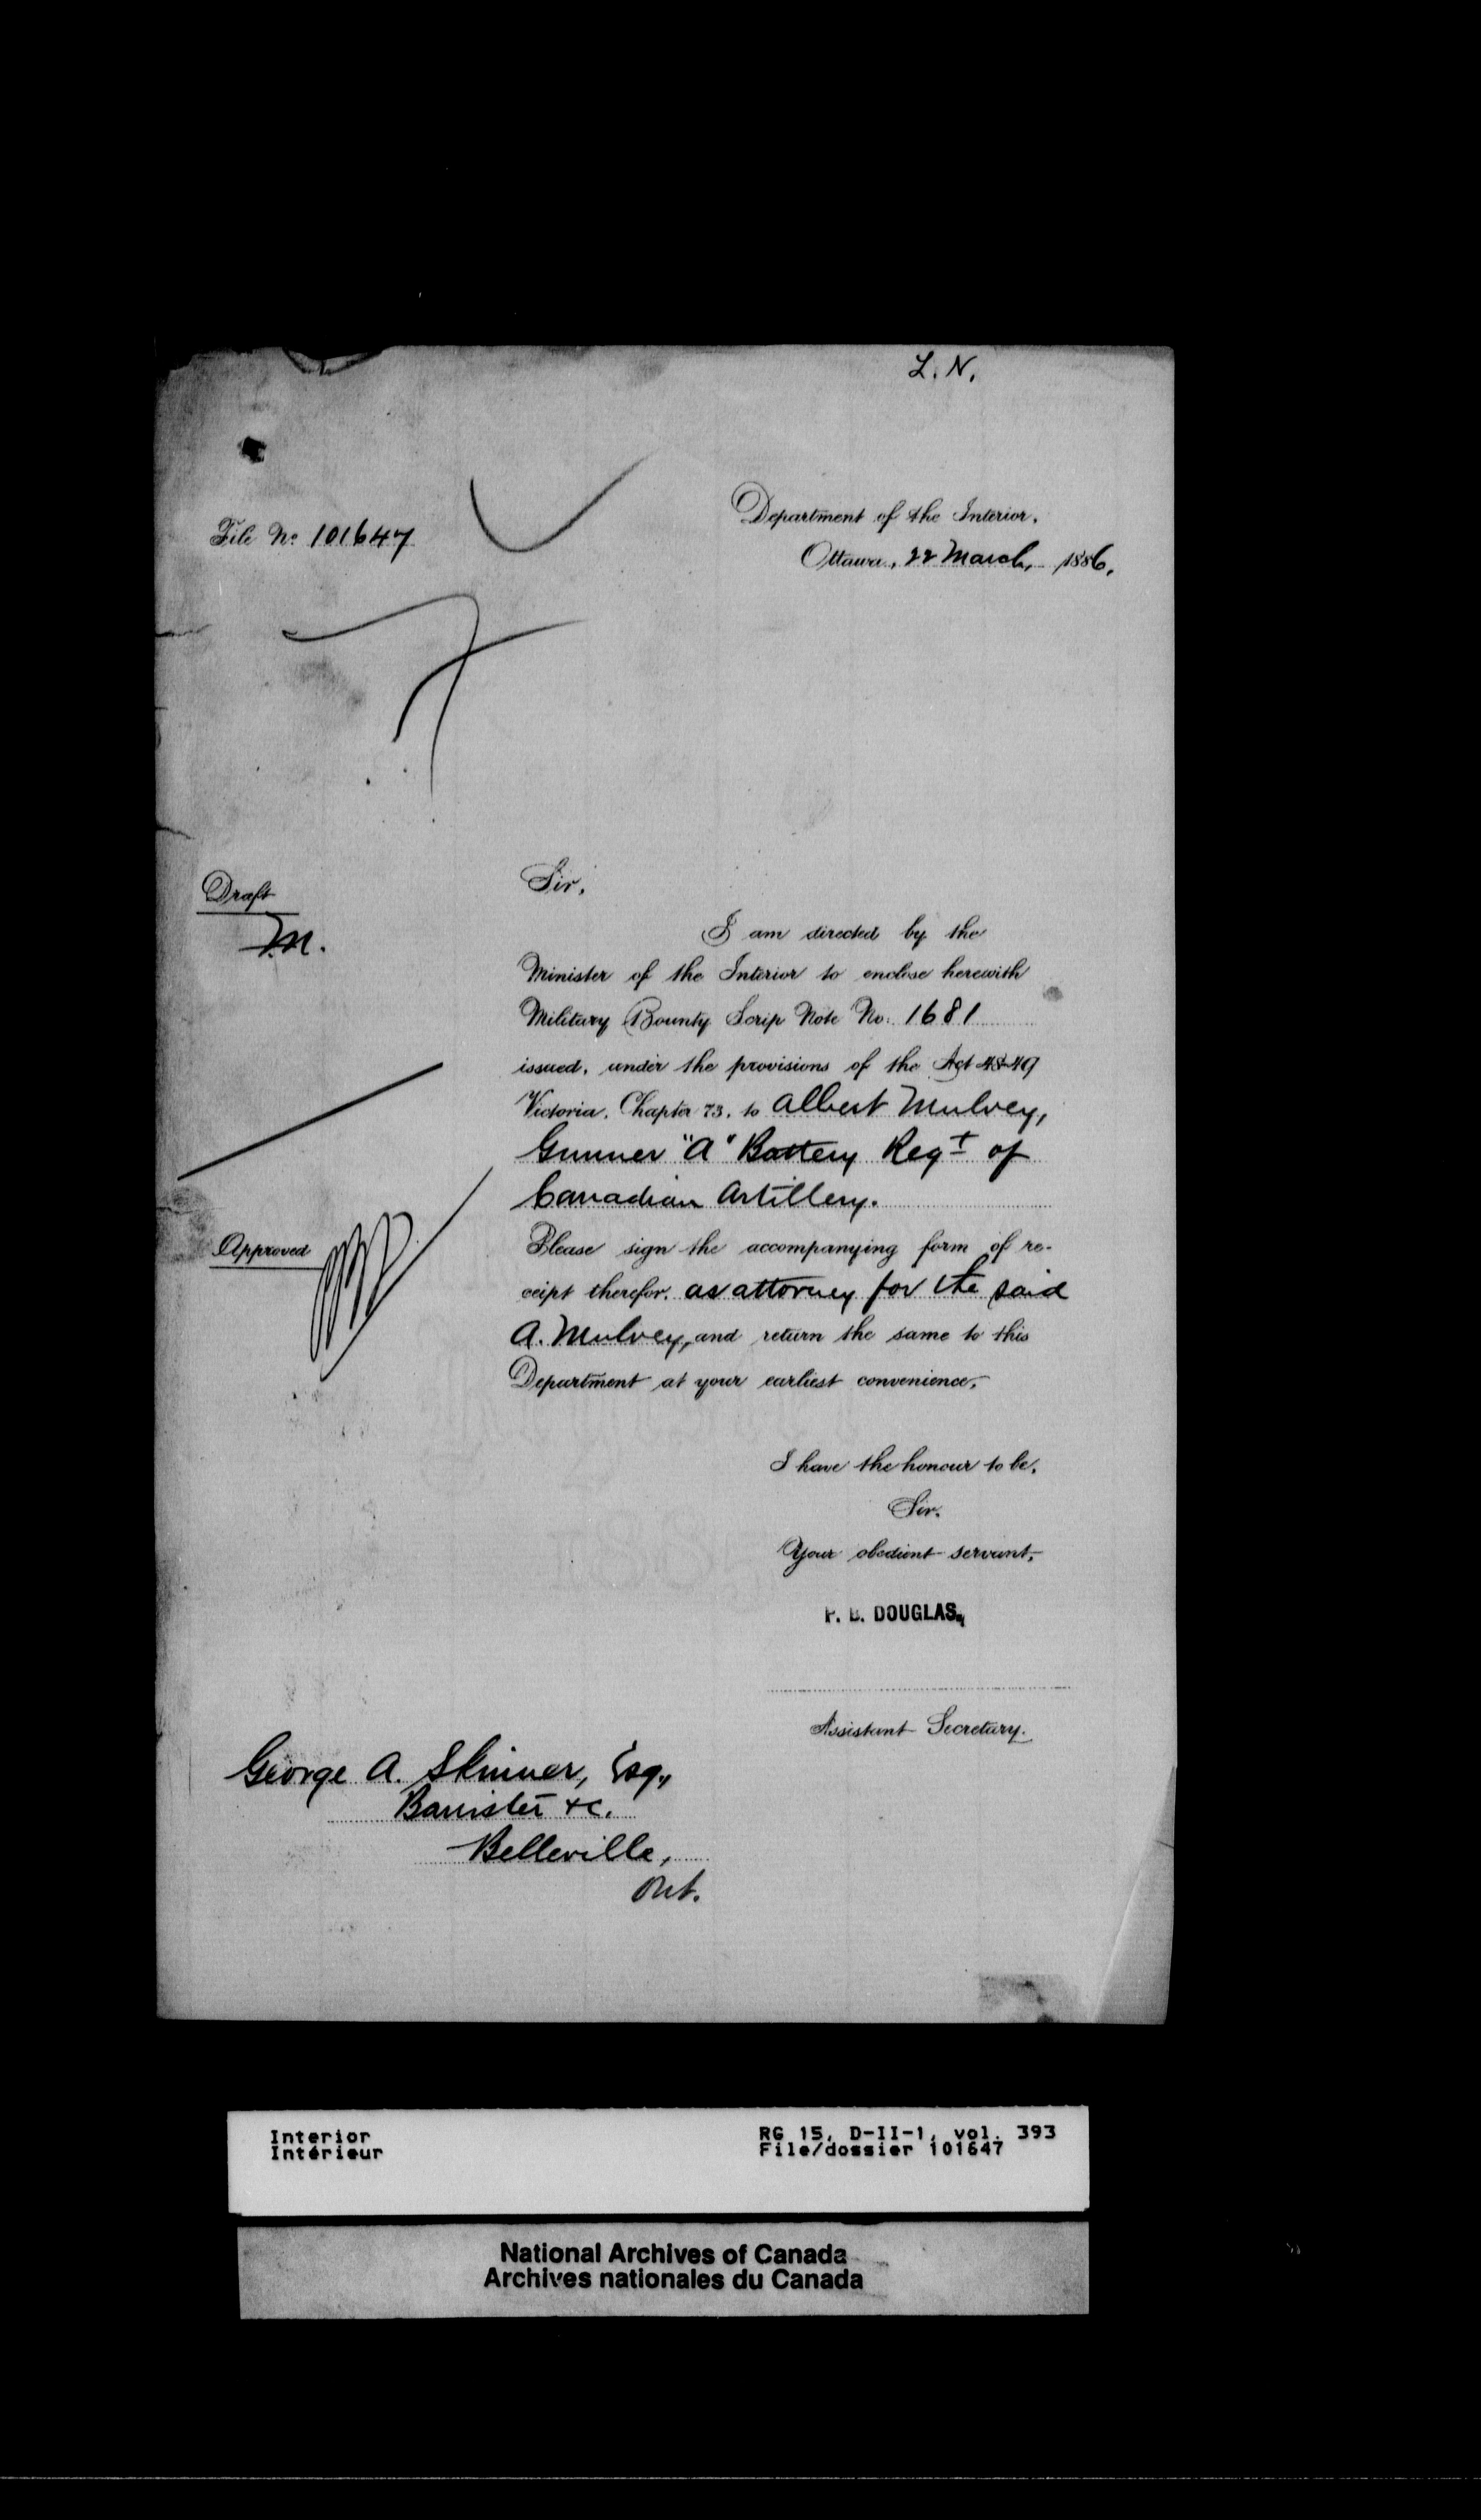 L. N.
File No. 101647
Department of the Interior,
Ottawa, 22 March, 1886.
Draft
Sir,
I am directed by the
Minister of the Interior to enclose herewith
Military Bounty Scrip Note No. 1681
issued, under the provisions of the Act 48-49
Victoria, Chapter 73, to Albert Mulvey,
Gunner "A" Battery Regt of
Canadian Artillery.
Approved
Please sign the accompanying form of re-
ceipt therefor, as attorney for the said
A. Mulvey, and return the same to this
Department at your earliest convenience,
I have the honour to be,
Sir,
Your obedient servant,
P. B. DOUGLAS,
Assistant Secretary.
George A. Skinner, Esq.,
Barrister &c.
Belleville,
Ont.
Interior
Intérieur
RG 15, D-II-1, vol. 393
File/dossier 101647
National Archives of Canada
Archives nationales du Canada